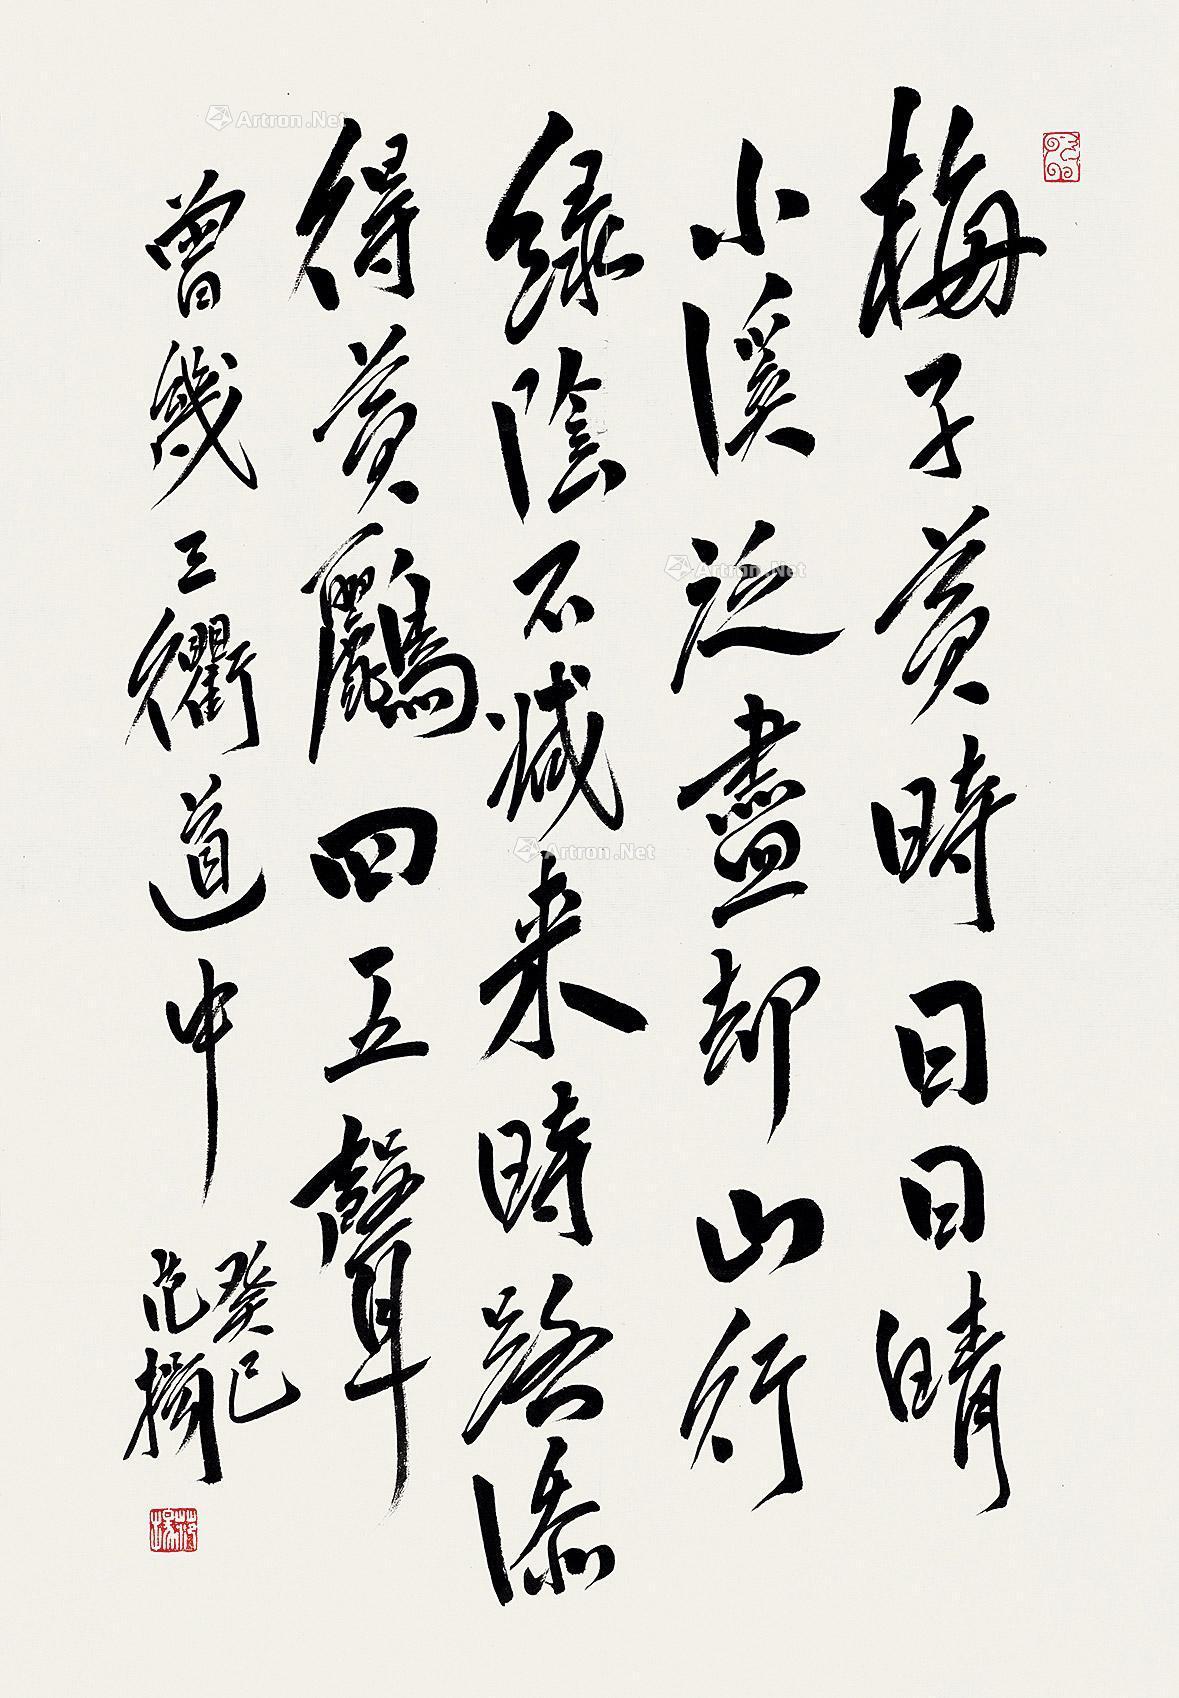 梅子黄時日日晴
小溪泛盡却山行
緑陰不减来時路添
得黄鸝四五聲
曾幾三衢道中
癸巳
范揚
Artron.Net
Artron.Net
Artron.Net